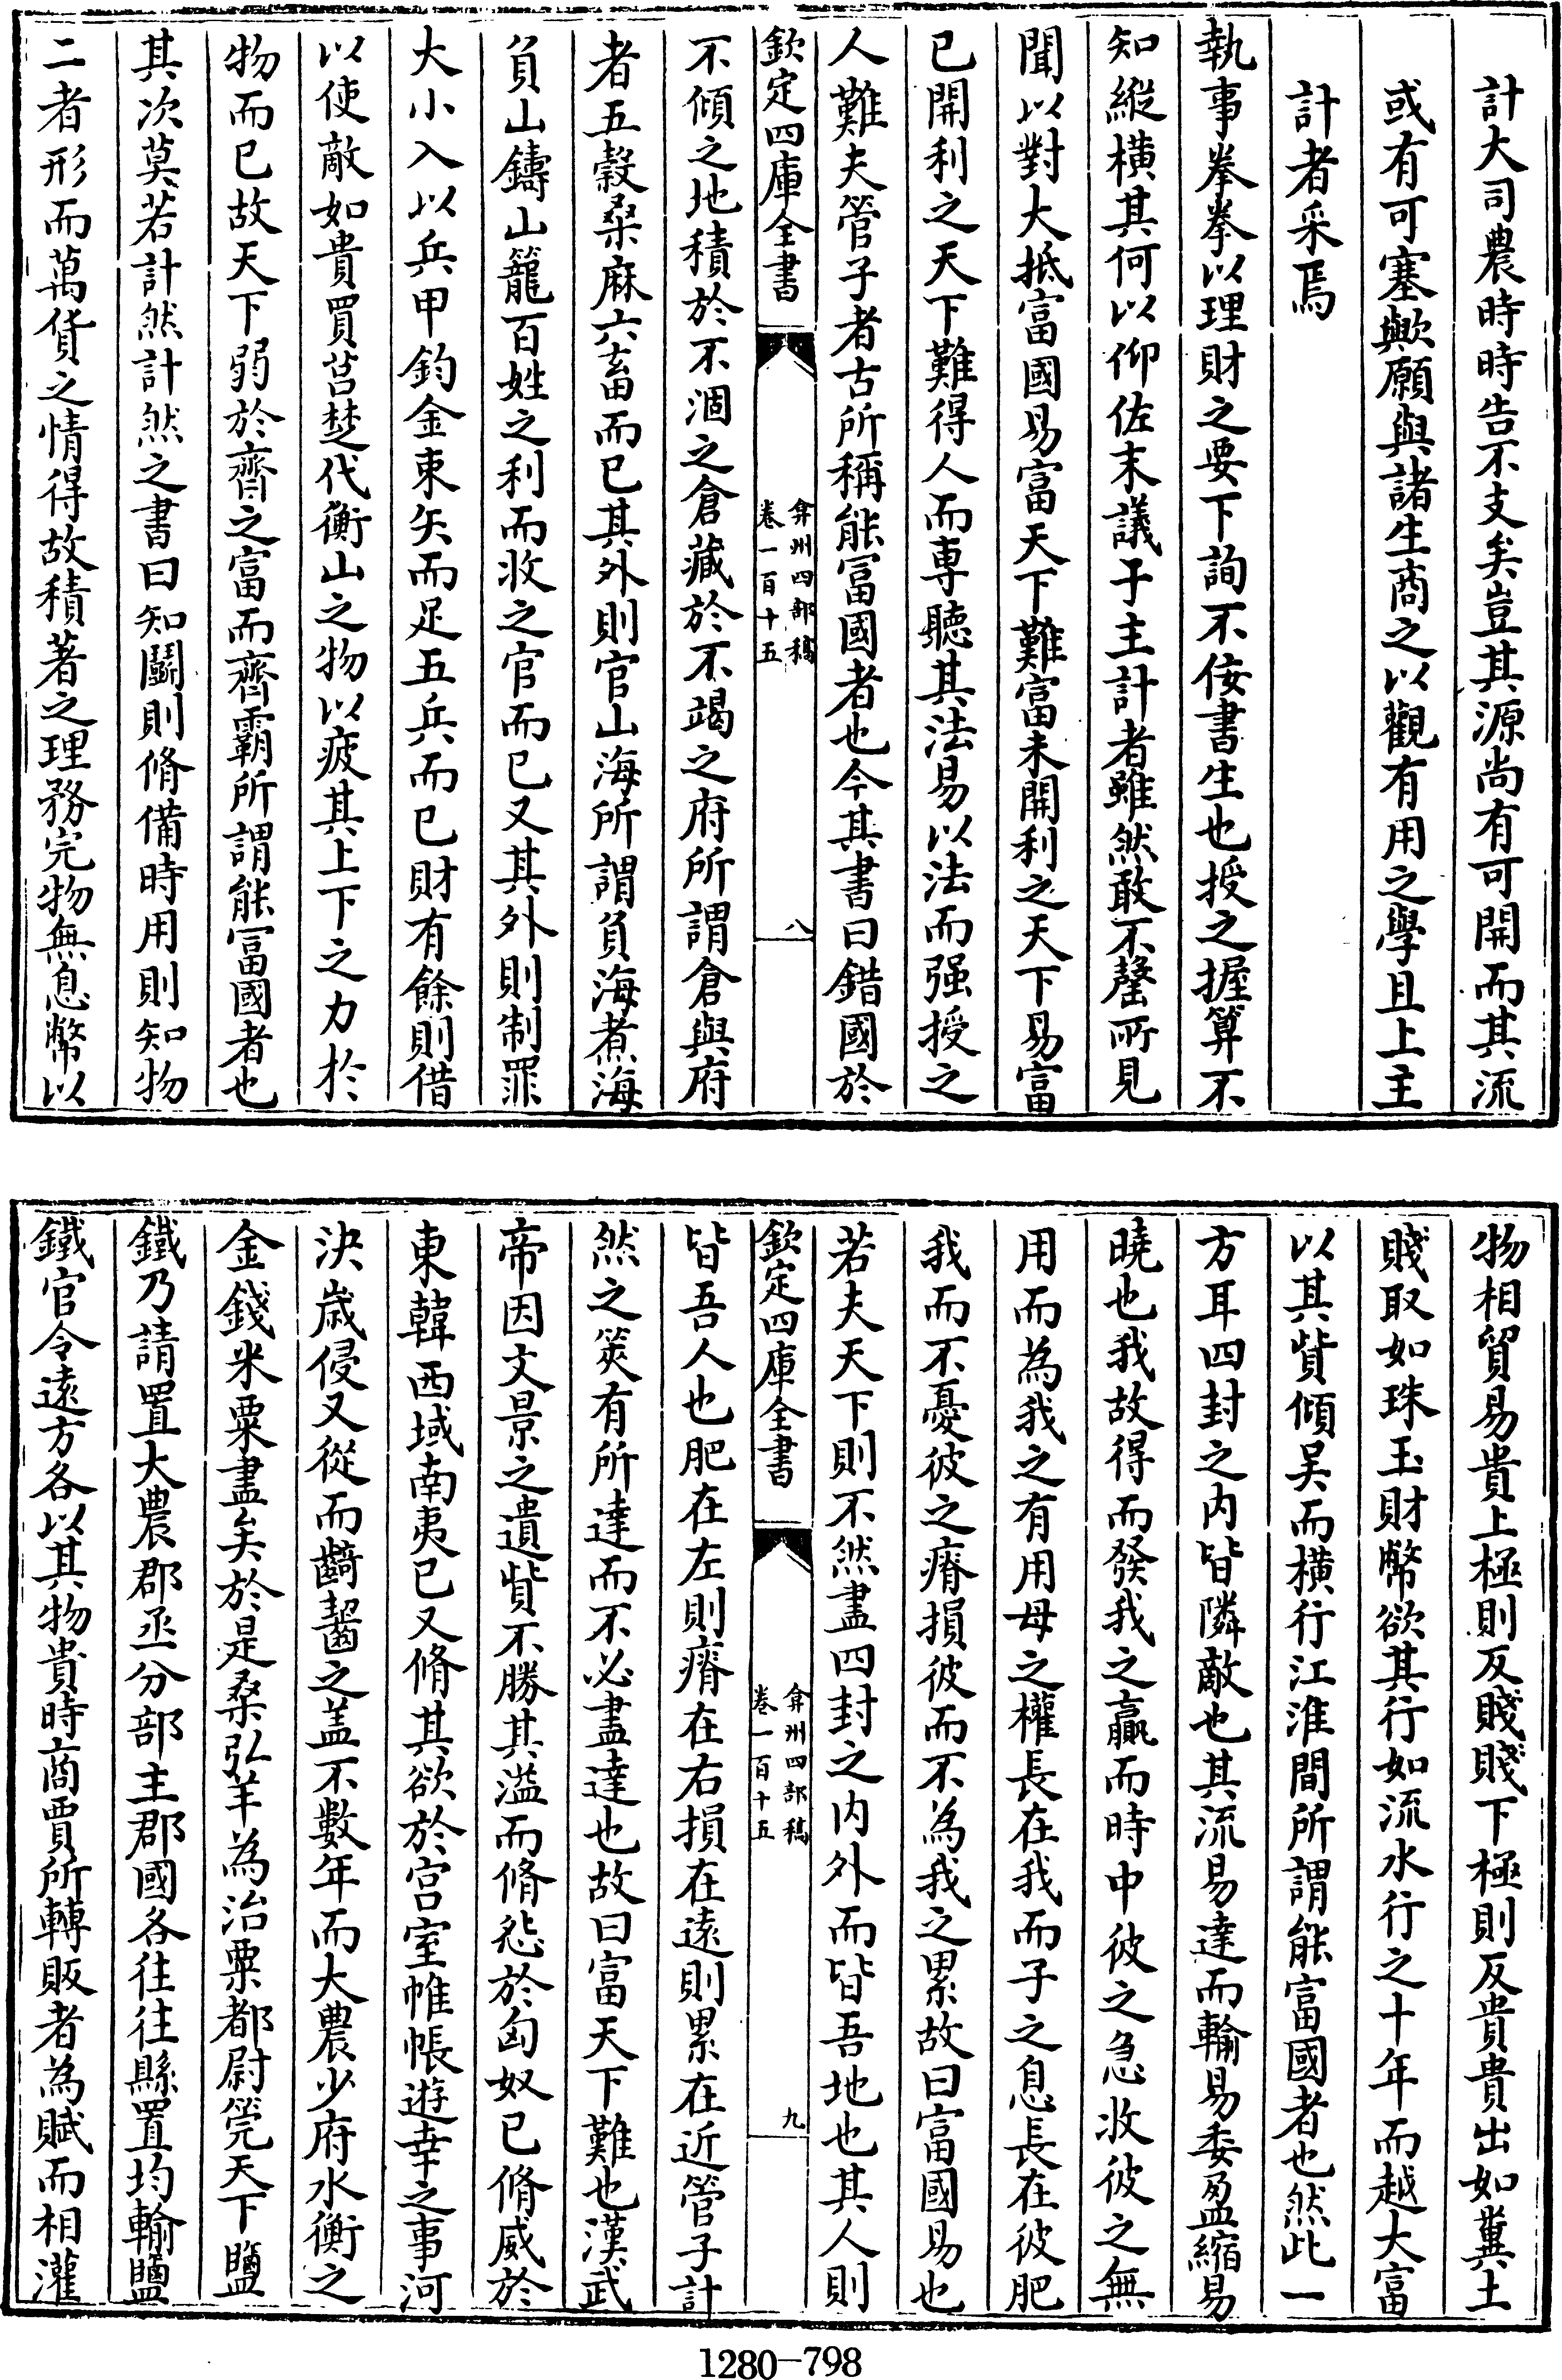 計大司農時時告不支矣豈其源尚有可開而其流
或有可塞歟願與諸生商之以觀有用之學且上主
計者采焉
執事拳拳以理財之要下詢不佞書生也授之握算不
知縱橫其何以仰佐末議于主計者雖然敢不罄所見
聞以對大抵富國易富天下難富未開利之天下易富
已開利之天下難得人而專聽其法易以法而强授之
人難夫管子者古所稱能富國者也今其書曰錯國於
欽定四庫全書
弇州四部稿
卷一百十五
八
不傾之地積於不涸之倉藏於不竭之府所謂倉與府
者五穀桑麻六畜而已其外則官山海所謂負海煮海
負山鑄山籠百姓之利而收之官而已又其外則制罪
大小入以兵甲鈞金束矢而足五兵而已財有餘則借
以使敵如貴買莒楚代衡山之物以疲其上下之力於
物而已故天下弱於齊之富而齊霸所謂能富國者也
其次莫若計然計然之書曰知鬭則脩備時用則知物
二者形而萬貨之情得故積著之理務完物無息幣以
物相貿易貴上極則反賤賤下極則反貴貴出如糞土
賤取如珠玉財幣欲其行如流水行之十年而越大富
以其貲傾吴而橫行江淮間所謂能富國者也然此一
方耳四封之内皆隣敵也其流易達而輸易委盈縮易
曉也我故得而發我之贏而時中彼之急收彼之無
用而為我之有用母之權長在我而子之息長在彼肥
我而不憂彼之瘠損彼而不為我之累故曰富國易也
若夫天下則不然盡四封之内外而皆吾地也其人則
欽定四庫全書
弇州四部稿
卷一百十五
九
皆吾人也肥在左則瘠在右損在遠則累在近管子計
然之筴有所達而不必盡達也故曰富天下難也漢武
帝因文景之遺貲不勝其溢而脩怨於匈奴已脩威於
東韓西域南夷已又脩其欲於宫室帷帳遊幸之事河
決歳侵又從而齮齧之盖不數年而大農少府水衡之
金錢米粟盡矣於是桑弘羊為治粟都尉筦天下鹽
鐵乃請置大農郡丞分部主郡國各往往縣置均輸鹽
鐵官令遠方各以其物貴時商賈所轉販者為賦而相灌
1280—798